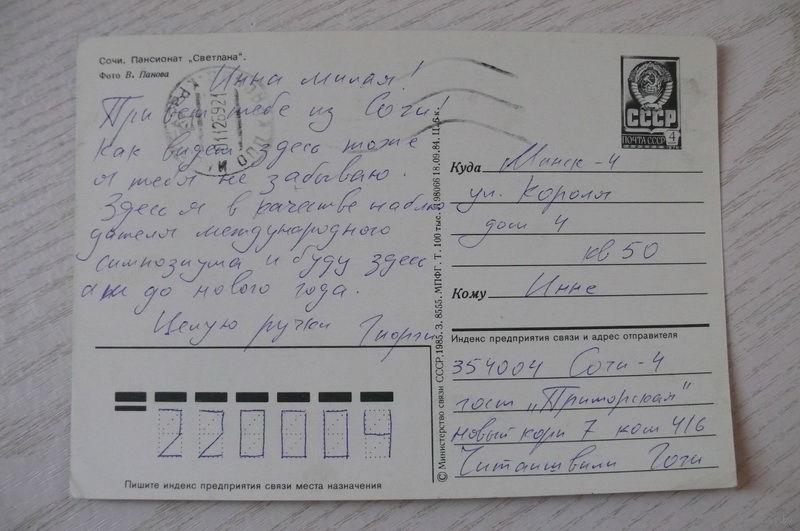 Сочи. Пансионат „Светлана“.
Фото В. Панова
Инна милая!
Привет тебе из Сочи!
Как видеш здесь тоже
я тебя не забываю.
Здесь я в качестве наблю
дателя международного
симпозиума и буду здесь
аж до нового года.
Целую ручки Гиорги
Пишите индекс предприятия связи места назначения
220004
© Министерство связи СССР. 1985. З. 8555. МПФГ. Т. 100 тыс. 98066 18.09.84. Ц. 5 к.
СССР
ПОЧТА СССР
4
Куда Минск-4
ул. Короля
дом 4
кв 50
Кому Инне
Индекс предприятия связи и адрес отправителя
354004 Сочи-4
гост „Приморская“
новый корп 7 ком 416
Читаишвили Гоги